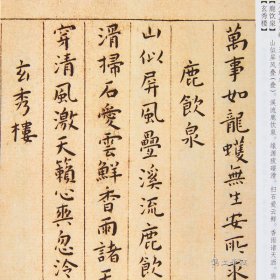 【鹿饮泉】
山似屏风叠(疊)
溪流鹿饮泉。
扫石爱云鲜。香雨诸天洒
【玄秀楼】
萬事如龍蠖無生安所
鹿飲泉
山似屏風疊溪流鹿飲
滑掃石愛雲鮮香雨諸天
穿清風激天籟心與忽泠
玄秀樓